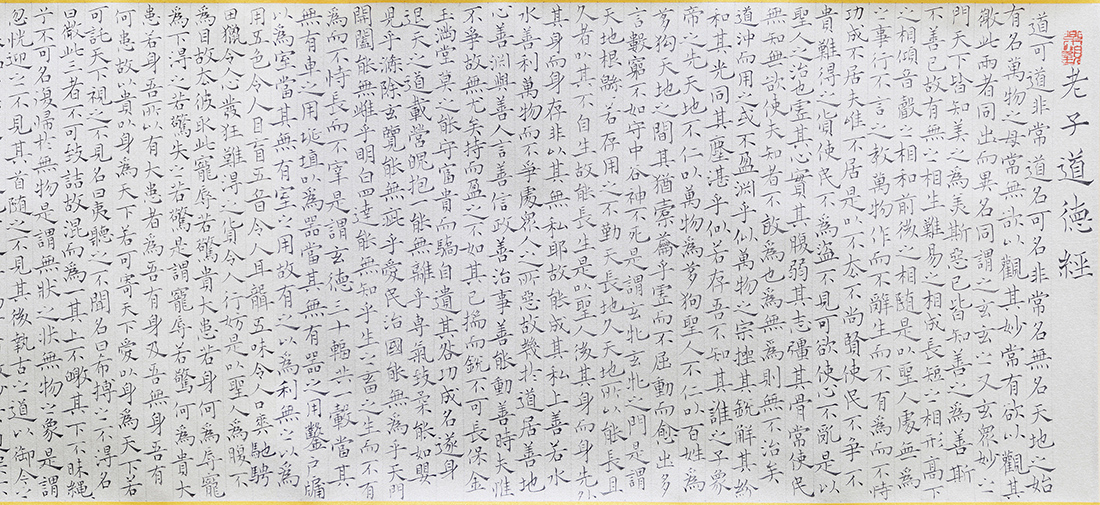 老子道德經
道可道非常道名可名非常名無名天地之始
有名萬物之母常無欲以觀其妙常有欲以觀其
徼此兩者同出而異名同謂之玄玄之又玄眾妙之
門天下皆知美之為美斯惡已皆知善之為善斯
不善已故有無之相生難易之相成長短之相形高下
之相傾音聲之相和前後之相随是以聖人處無為
之事行不言之教萬物作而不辭生而不有為而不恃
功成不居夫惟不居是以不去不尚賢使民不爭不
貴難得之貨使民不為盜不見可欲使心不亂是以
聖人之治也虛其心實其腹弱其志彊其骨常使民
無知無欲使夫知者不敢為也為無為則無不治矣
道沖而用之或不盈淵乎似萬物之宗挫其銳解其紛
和其光同其塵湛乎似若存吾不知其誰之子象
帝之先天地不仁以萬物為芻狗聖人不仁以百姓為
芻狗天地之間其猶橐籥乎虛而不屈動而愈出多
言數窮不如守中谷神不死是謂玄牝玄牝之門是謂
天地根緜緜若存用之不勤天長地久天地所以能長且
久者以其不自生故能長生是以聖人後其身而身先外
其身而身存非以其無私耶故能成其私上善若水
水善利萬物而不爭處眾人之所惡故幾於道居善地
心善淵與善人言善信政善治事善能動善時夫惟
不爭故無尤矣持而盈之不如其已揣而銳不可長保金
玉滿堂莫之能守富貴而驕自遺其咎功成名遂身
退天之道載營魄抱一能無離乎專氣致柔能如嬰
兒乎滌除玄覽能無疵乎愛民治國能無為乎天門
開闔能無雌乎明白四達能無知乎生之畜之生而不有
為而不恃長而不宰是謂玄德三十輻共一轂當其
無有車之用埏埴以為器當其無有器之用鑿戶牖
以為室當其無有室之用故有之以為利無之以為
用五色令人目盲五音令人耳聾五味令人口爽馳騁
田獵令人心發狂難得之貨令人行妨是以聖人為腹不
為目故去彼取此寵辱若驚貴大患若身何為辱寵
為下得之若驚失之若驚是謂寵辱若驚何為貴大
患若身吾所以有大患者為吾有身及吾無身吾有
何患故以貴以身為天下若可寄天下愛以身為天下若
可託天下視之不見名曰夷聽之不聞名曰希搏之不得名
曰微此三者不可致詰故混而為一其上不皦其下不昧繩
兮不可名復歸於無物是謂無狀之狀無物之象是謂
忽恍迎之不見其首随之不見其後執古之道以御今之